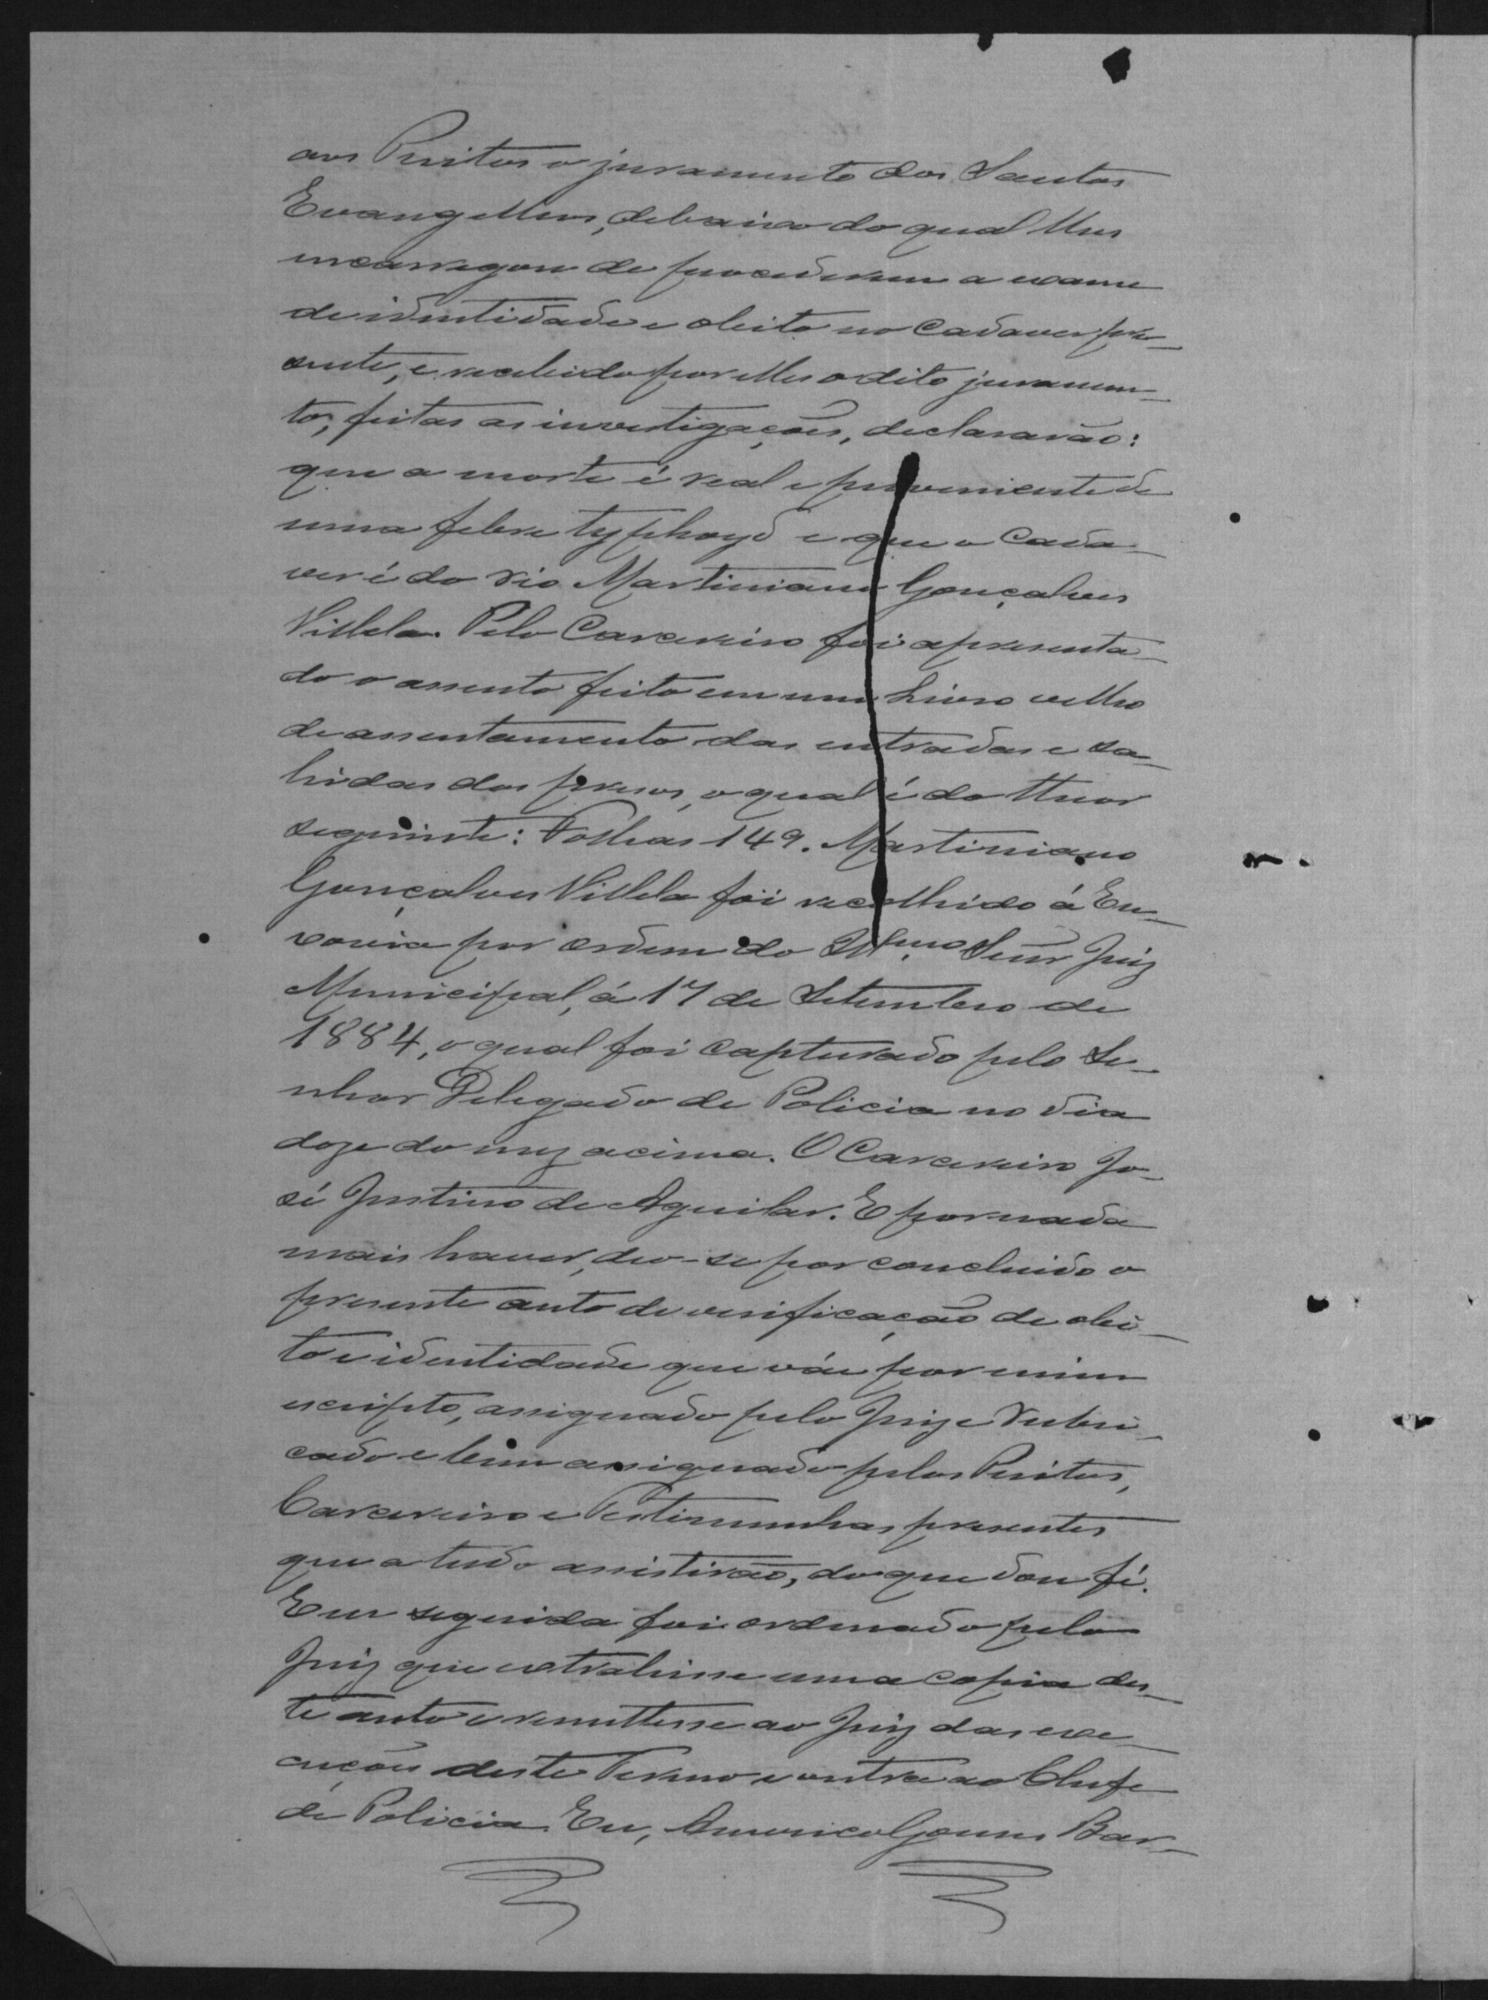 aos Peritos o juramento dos Santos
Evangelhos, debaixo do qual lhes
incarregou de procederem a exame
de identidade e obito no cadaver pre-
sente, e recebido por elles o dito juramen-
to, feitas as investigações, declararão:
que a morte é real e proveniente de
uma febre typhoyd e que o cada-
ver é do réo Martiniano Gonçalves
Villela. Pelo Carcereiro foi apresenta-
do o assento feito em um Livro velho
de assentamento das entradas e sa-
hidas dos presos, o qual é do theor
seguinte: Folhas 149. Martiniano
Gonçalves Villela foi recolhido á En-
xovia por ordem do Illmo. Senr Juiz
Municipal, á 17 de Setembro de
1884, o qual foi capturado pelo Se-
nhor Delegado de Policia no dia
doze do mez acima. O Carcereiro Jo-
sé Justino de Aguilar. E por nada
mais haver, deo-se por concluido o
presente auto de verificação de obi-
to e identidade que váe por mim
escripto, assignado pelo Juiz e rubri-
cado e bem assignado pelos Peritos,
Carcereiro e Testimunhas presentes
que a tudo assistirão, do que dou fé.
Em seguida foi ordenado pelo
Juiz que extrahisse uma copia des-
te auto e remettesse ao Juiz das exe-
cuções deste Termo e outra ao Chefe
de Policia. Eu, Americo Gomes Bar-